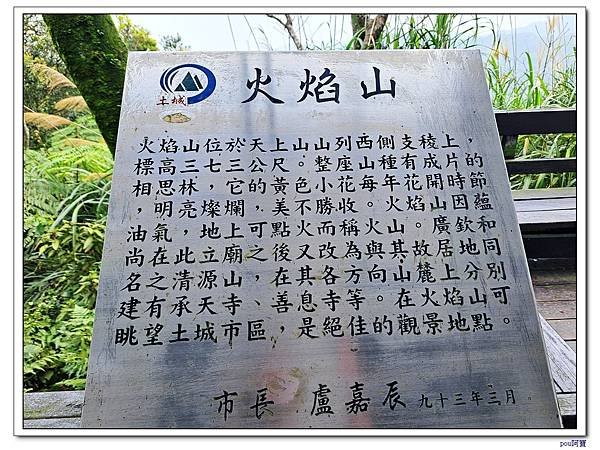 土城
火焰山
火焰山位於天上山山列西側支稜上，
標高三七三公尺。整座山種有成片的
相思林，它的黃色小花每年花開時節
，明亮燦爛，美不勝收。火焰山因蘊
油氣，地上可點火而稱火山。廣欽和
尚在此立廟之後又改為與其故居地同
名之清源山，在其各方向山麓上分別
建有承天寺、善息寺等。在火焰山可
眺望土城市區，是絕佳的觀景地點。
市長 盧嘉辰 九十三年三月
pou阿寶